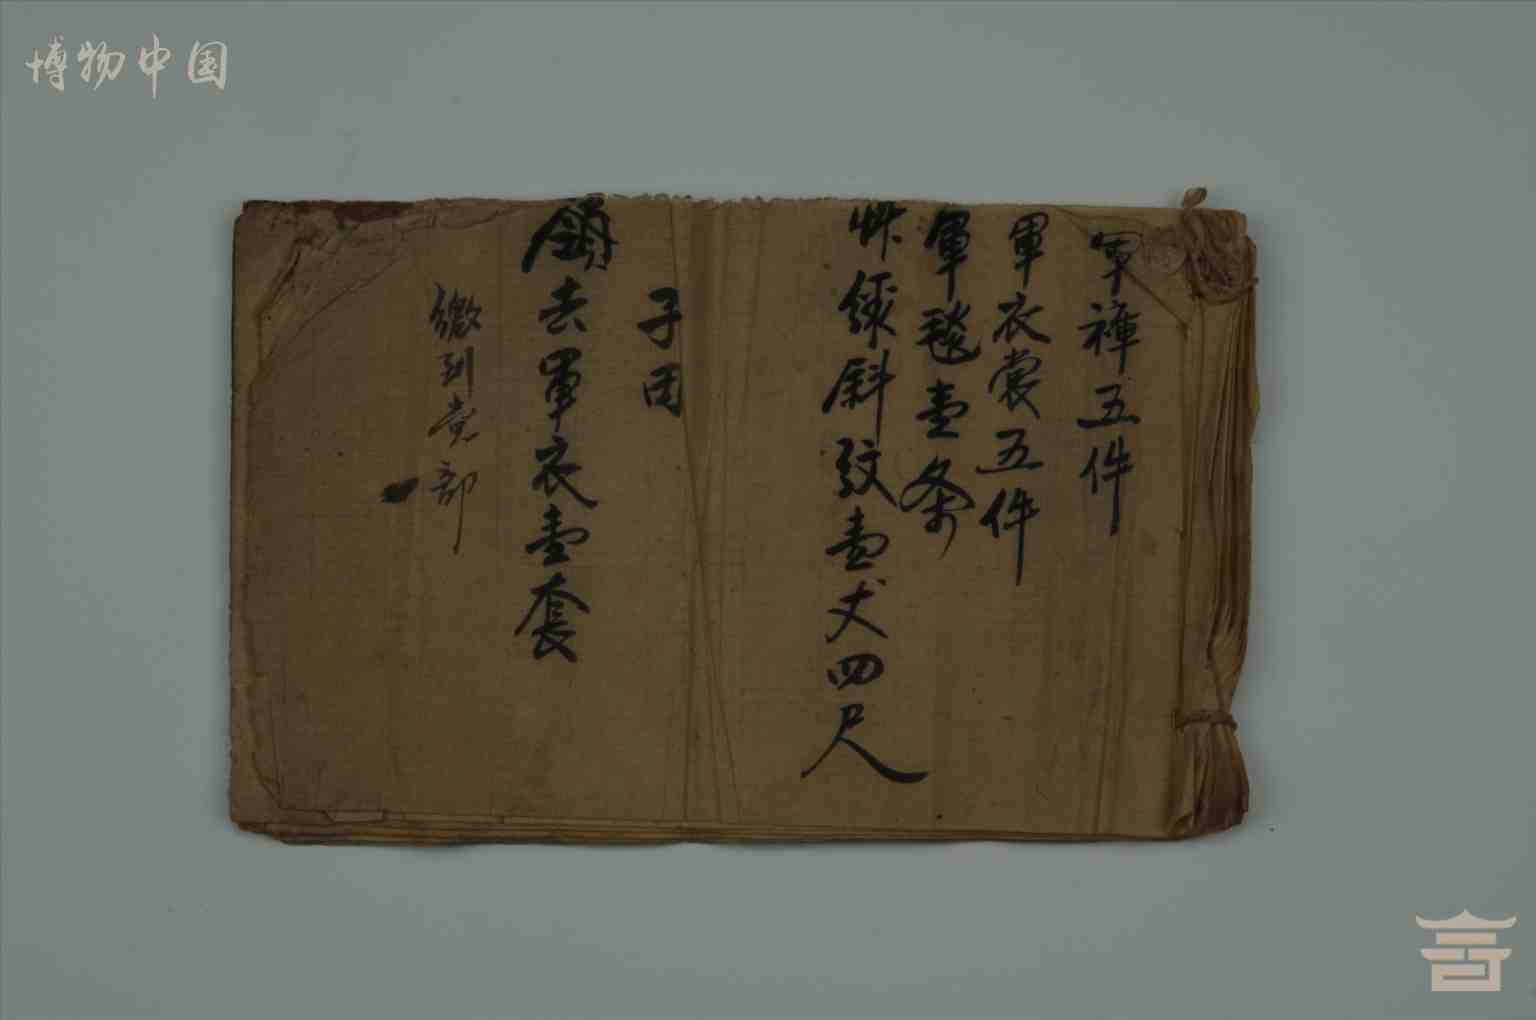 博物中国
軍褲五件
軍衣裳五件
軍毯壹条
斜紋壹丈四尺
子囝
銷去軍衣壹套
繳到党部